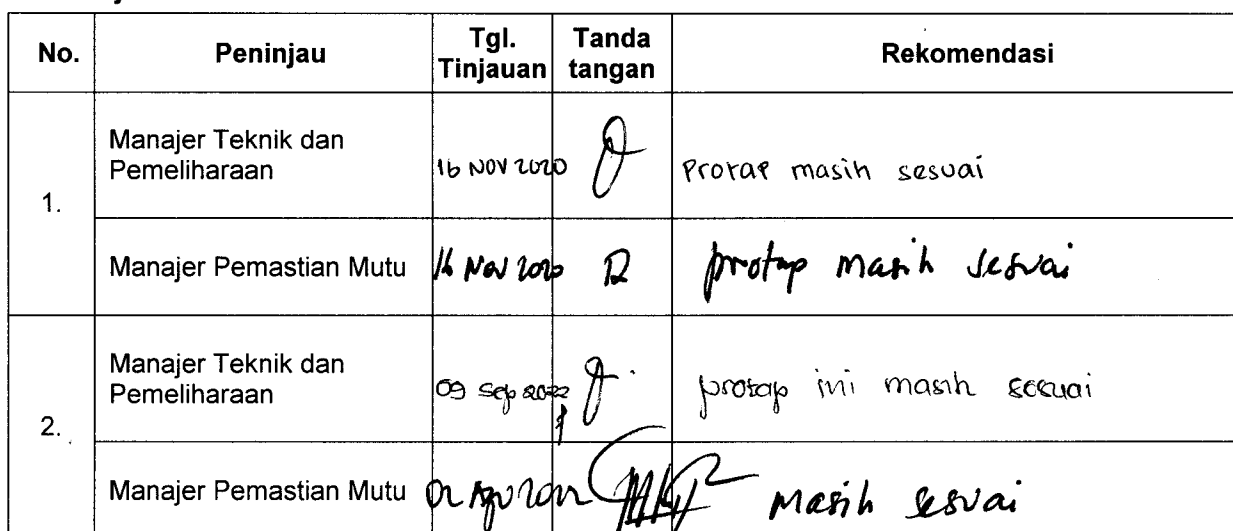 No. Peninjau Tgl. Tinjauan Tanda tangan Rekomendasi
1.
Manajer Teknik dan Pemeliharaan 16 NOV 2020 protap masih sesuai
Manajer Pemastian Mutu 16 Nov 2020 protap masih sesuai
2.
Manajer Teknik dan Pemeliharaan 09 Sep 2022 protap ini masih sesuai
Manajer Pemastian Mutu 02 2022 masih sesuai